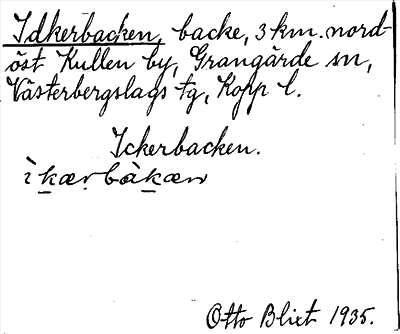 Idkerbacken, backe, 3 km. nord-
öst Kullen by, Grangärde sn,
Västerbergslags tg, Kopp l.
Ickerbacken.
ìkær bàkæn
Otto Blixt 1935.